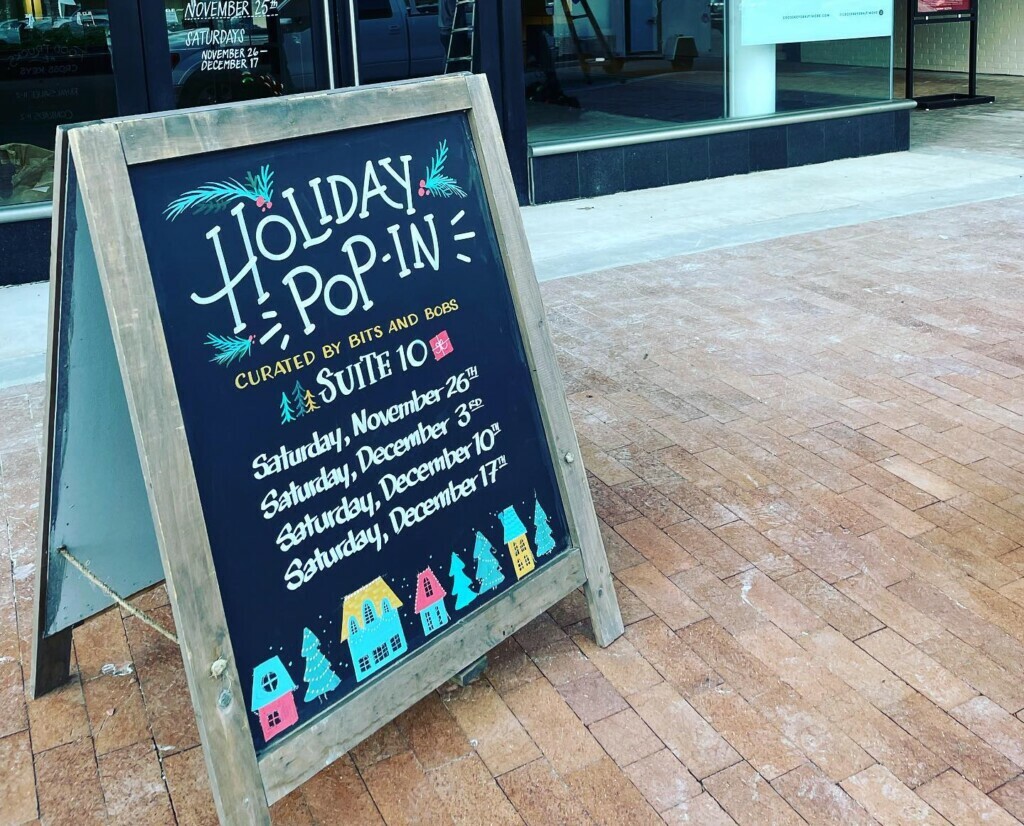 NOVEMBER 25TH
SATURDAYS
NOVEMBER 26-
DECEMBER 17
HOLIDAY
POP-IN
CURATED BY BITS AND BOBS
SUITE 10
Saturday, November 26TH
Saturday, December 3RD
Saturday, December 10TH
Saturday, December 17TH